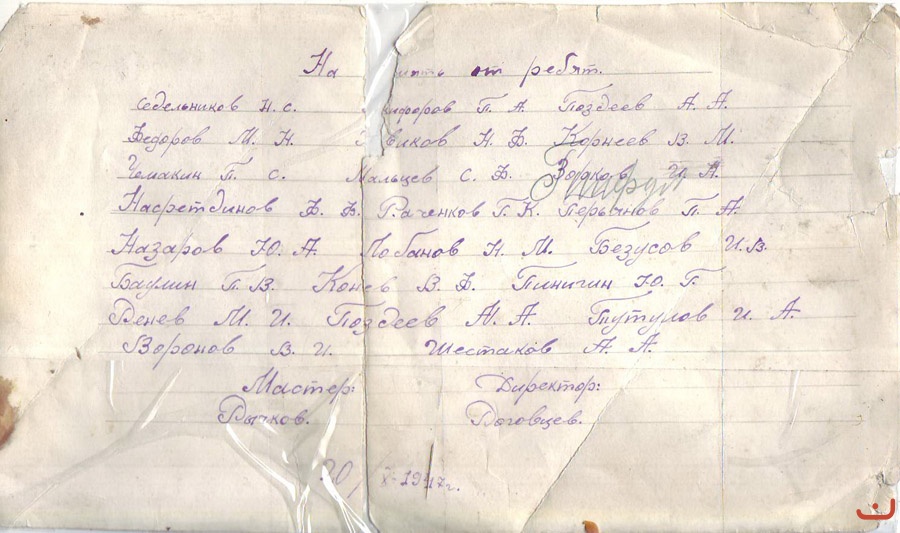 На мять от ребят.
Седельников Н. С. кифоров П. А. Поздеев А. А.
Федоров М. Н. виков Н. Ф. Корнеев В. М.
Чемакин П. С. Мальцев С. Ф. И. А.
Насретдинов Ф. Ф. Раченков Г. К. Перычнов П. А.
Назаров Ю. А. Лобанов Н. М. Безусов И. В.
Баулин П. В. Конев В. Ф. Пиничин Ю. Г.
Венев М. И. Поздеев А. А. Тутулов И. А.
Воронов В. И. Шестаков А. А.
Мастер: Директор:
Рычков. Воговцев.
20/X-1947г.